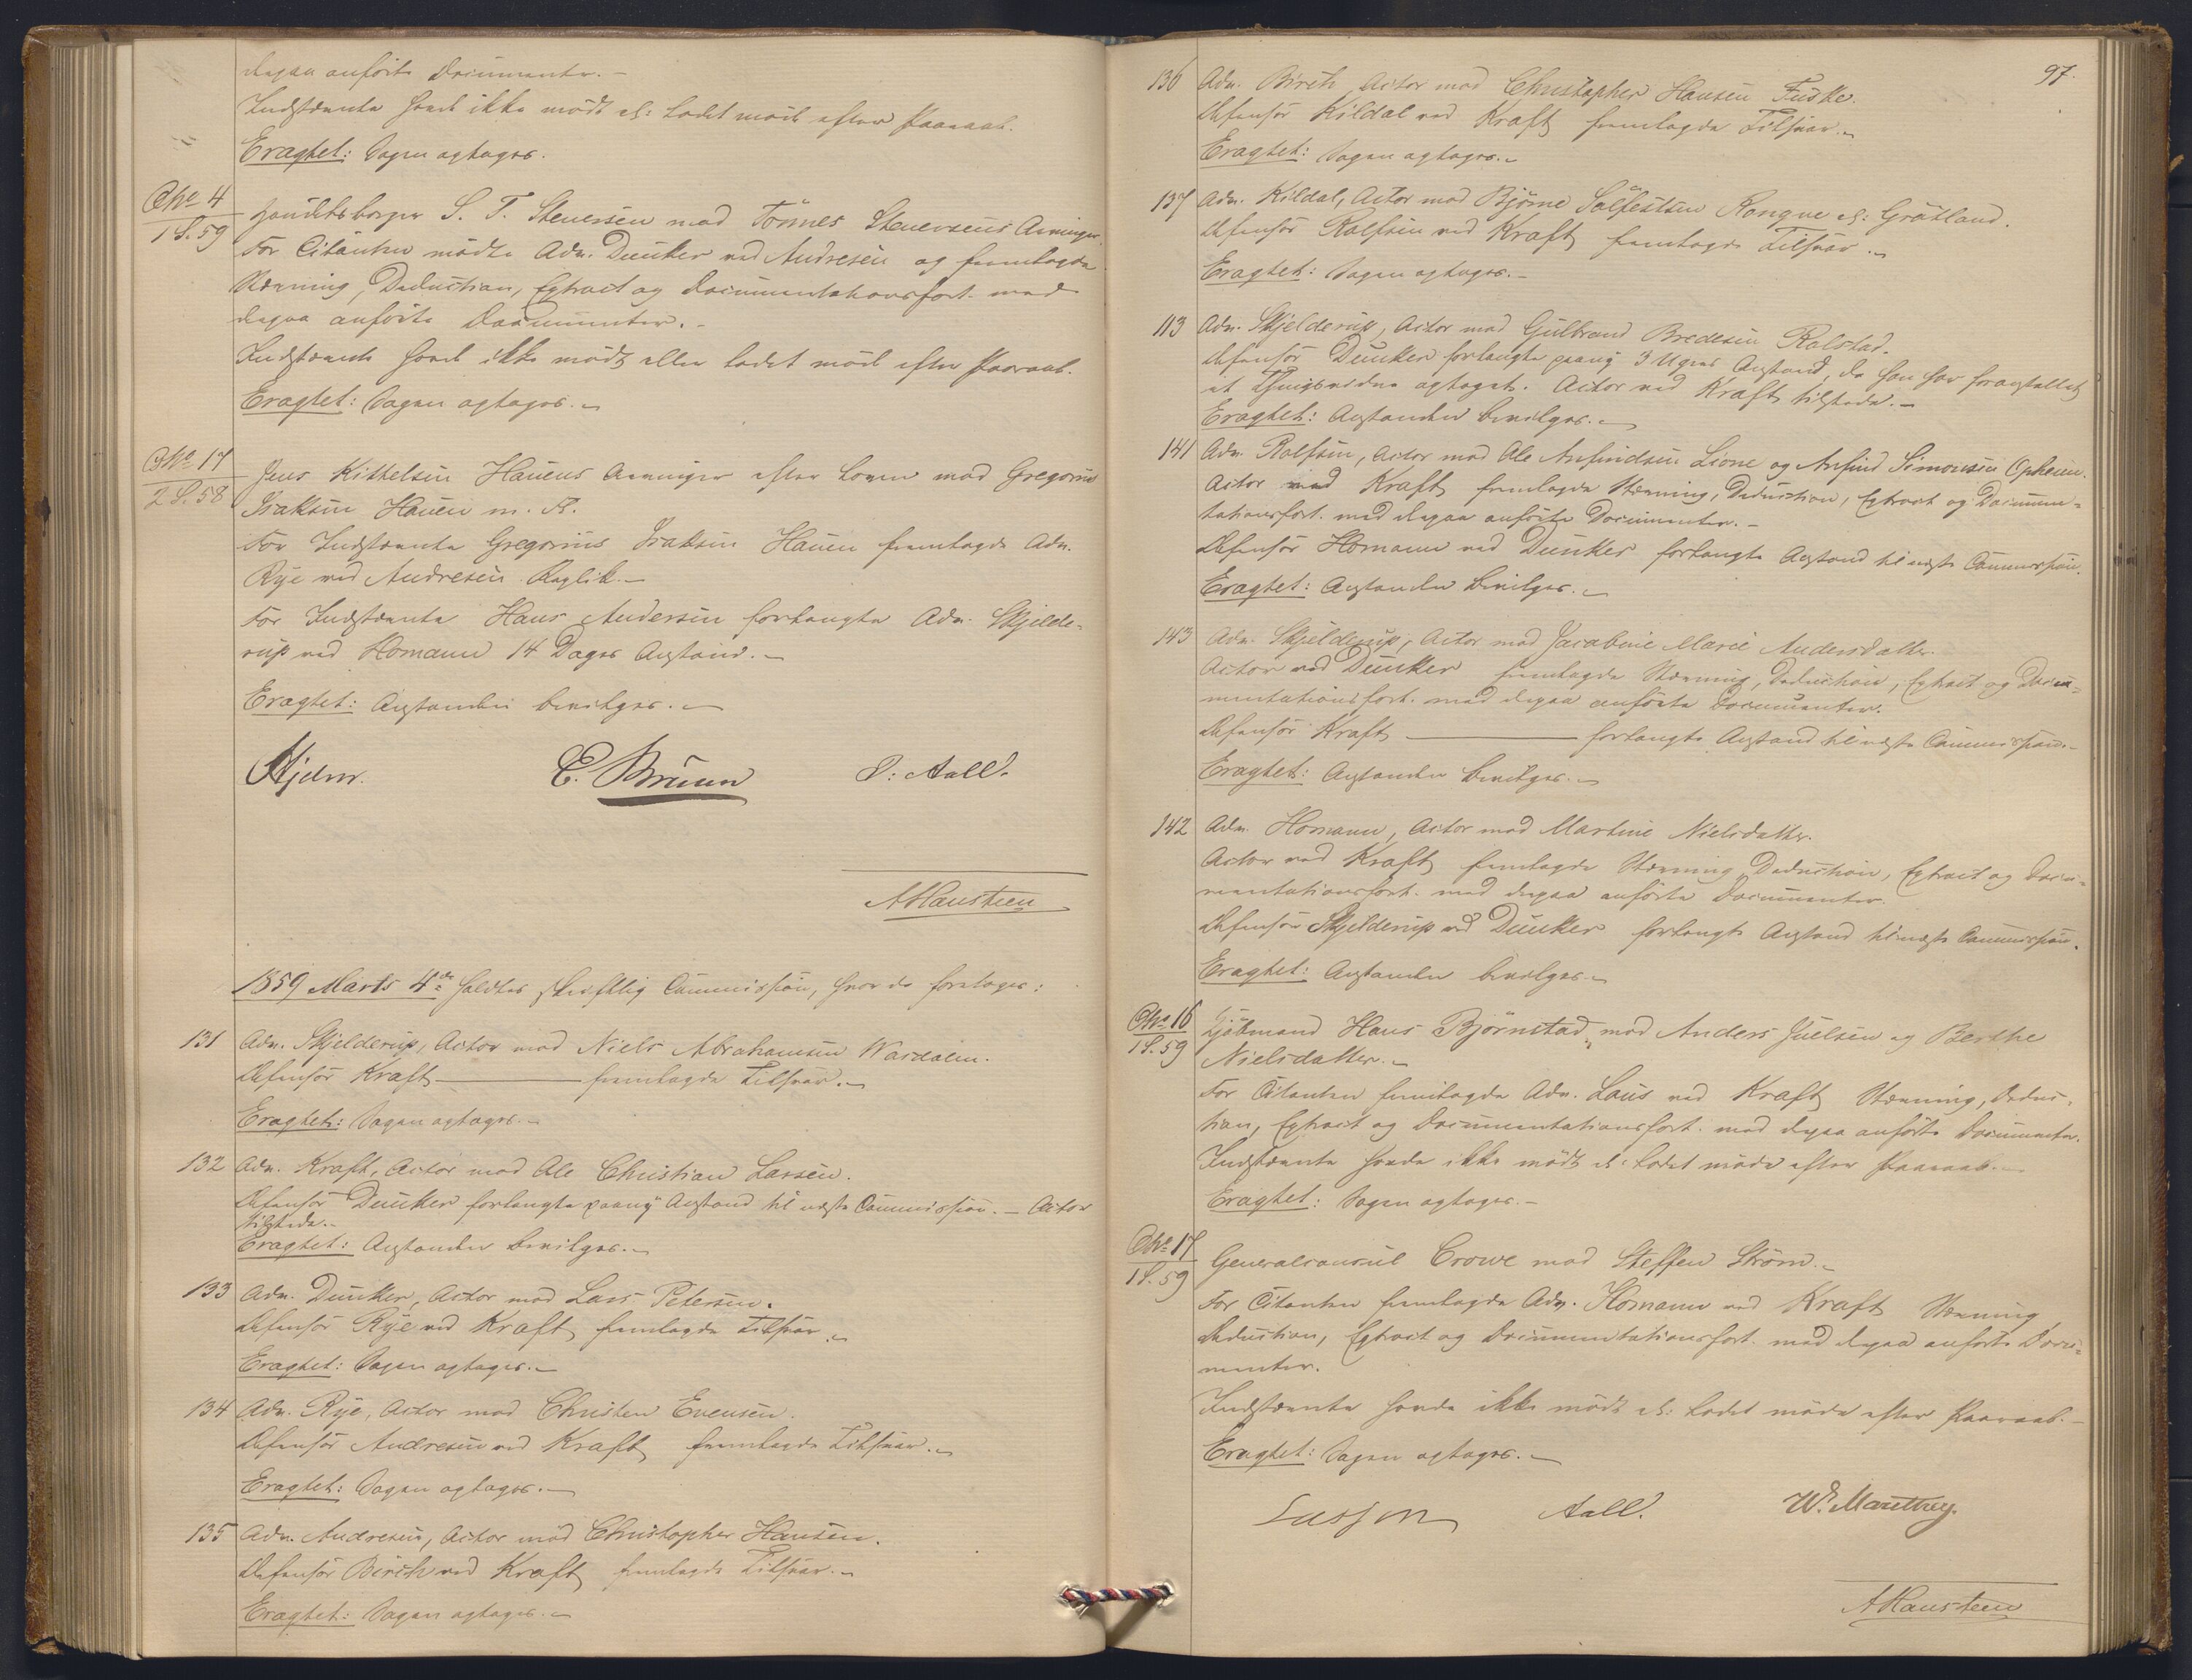 derpaa anførte Documenter. –
Indstævnte havde ikke mødt el: ladet møde efter Paaraab.
Eragtet: Sagen optages.
No 4
1 S. 59
Handelsborger S. T. Stenersen mod Tönnes Stenersens Arvinger.
For Citanten mødte Adv. Dunker ved Andresen og fremlagde
Stævning, Deduction, Extract og Documentationsfort. med
derpaa anførte Documenter. –
Indstævnte havde ikke mødt eller ladet møde efter Paaraab.
Eragtet: Sagen optages. –
No 17
2 S. 58
Jens Kittelsen Hauens Arvinger efter Loven mod Gregorius
Isaksen Hauen m. Fl.
For Indstævnte Gregorius Isaksen Hauen fremlagde Adv.
Rye ved Andresen Replik. –
For Indstævnte Hans Andersen forlangte Adv. Skjelde-
rup ved Homann 14 Dages Anstand. –
Eragtet: Anstanden bevilges. –
E. Bruun
P: Aall.
AHansteen
1859 Marts 4de holdtes skriftlig Commission, hvor da foretoges:
131 Adv. Skjelderup, Actor mod Niels Abrahamsen Wardalen.
Defensor Kraft – fremlagde Tilsvar. –
Eragtet: Sagen optages. –
132 Adv. Kraft, Actor mod Ole Christian Larsen.
Defensor Dunker forlangte paany Anstand til næste Commission. – Actor
tilstede. –
Eragtet: Anstanden bevilges. –
133 Adv. Dunker, Actor mod Lars Petersen.
Defensor Rye ved Kraft fremlagde Tilsvar. –
Eragtet: Sagen optages. –
134 Adv. Rye, Actor mod Christen Evensen.
Defensor Andresen ved Kraft fremlagde Tilsvar. –
Eragtet: Sagen optages. –
135 Adv. Andresen, Actor mod Christopher Hansen.
Defensor Birch ved Kraft fremlagde Tilsvar. –
Eragtet: Sagen optages. –
97.
136 Adv. Birch Actor mod Christopher Hansen Fuske.
Defensor Kildal ved Kraft fremlagde Tilsvar. –
Eragtet: Sagen optages. –
137 Adv. Kildal, Actor mod Björne Sölfestsen Rongve el: Grötland.
Defensor Rolfsen ved Kraft fremlagde Tilsvar. –
Eragtet: Sagen optages. –
113 Adv. Skjelderup, Actor mod Gulbrand Bredesen Rolstad.
Defensor Dunker forlangte paany 3 Ugers Anstand, da han har foranstaltet
et Thingsvidne optaget. Actor ved Kraft tilstede. –
Eragtet: Anstanden bevilges. –
141 Adv. Rolfsen, Actor mod Ole Anfindsen Lione og Anfind Simonsen Opheim.
Actor ved Kraft fremlagde Stævning, Deduction, Extract og Documen-
tationsfort. med derpaa anførte Documenter. –
Defensor Homann ved Dunker forlangte Anstand til næste Commission.
Eragtet: Anstanden bevilges. –
143 Adv. Skjelderup, Actor mod Jacobine Marie Andersdatter.
Actor ved Dunker fremlagde Stævning, Deduction, Extract og Docu-
mentationsfort. med derpaa anførte Documenter.
Defensor Kraft – forlangte Anstand til næste Commission. –
Eragtet: Anstanden bevilges. –
142 Adv. Homann, Actor mod Martine Nielsdatter.
Actor ved Kraft fremlagde Stævning Deduction, Extract og Docu-
mentationsfort. med derpaa anførte Documenter.
Defensor Skjelderup ved Dunker forlangte Anstand til næste Commission.
Eragtet: Anstanden bevilges. –
No 16
1 S. 59
Kjöbmand Hans Björnstad mod Anders Juelsen og Berthe
Nielsdatter. –
For Citanten fremlagde Adv. Lous ved Kraft Stævning, Deduc-
tion, Extract og Documentationsfort. med derpaa anførte Documenter.
Indstævnte havde ikke mødt el: ladet møde efter Paaraab. –
Eragtet: Sagen optages. –
No 17
1 S. 59
Generalconsul Crowe mod Steffen Ström. –
For Citanten fremlagde Adv. Homann ved Kraft Stævning
Deduction, Extract og Documentationsfort. med derpaa anførte Docu-
menter.
Indstævnte havde ikke mødt el: ladet møde efter Paaraab. –
Eragtet: Sagen optages. –
Lasson
Aall.
W. Manthey.
AHansteen